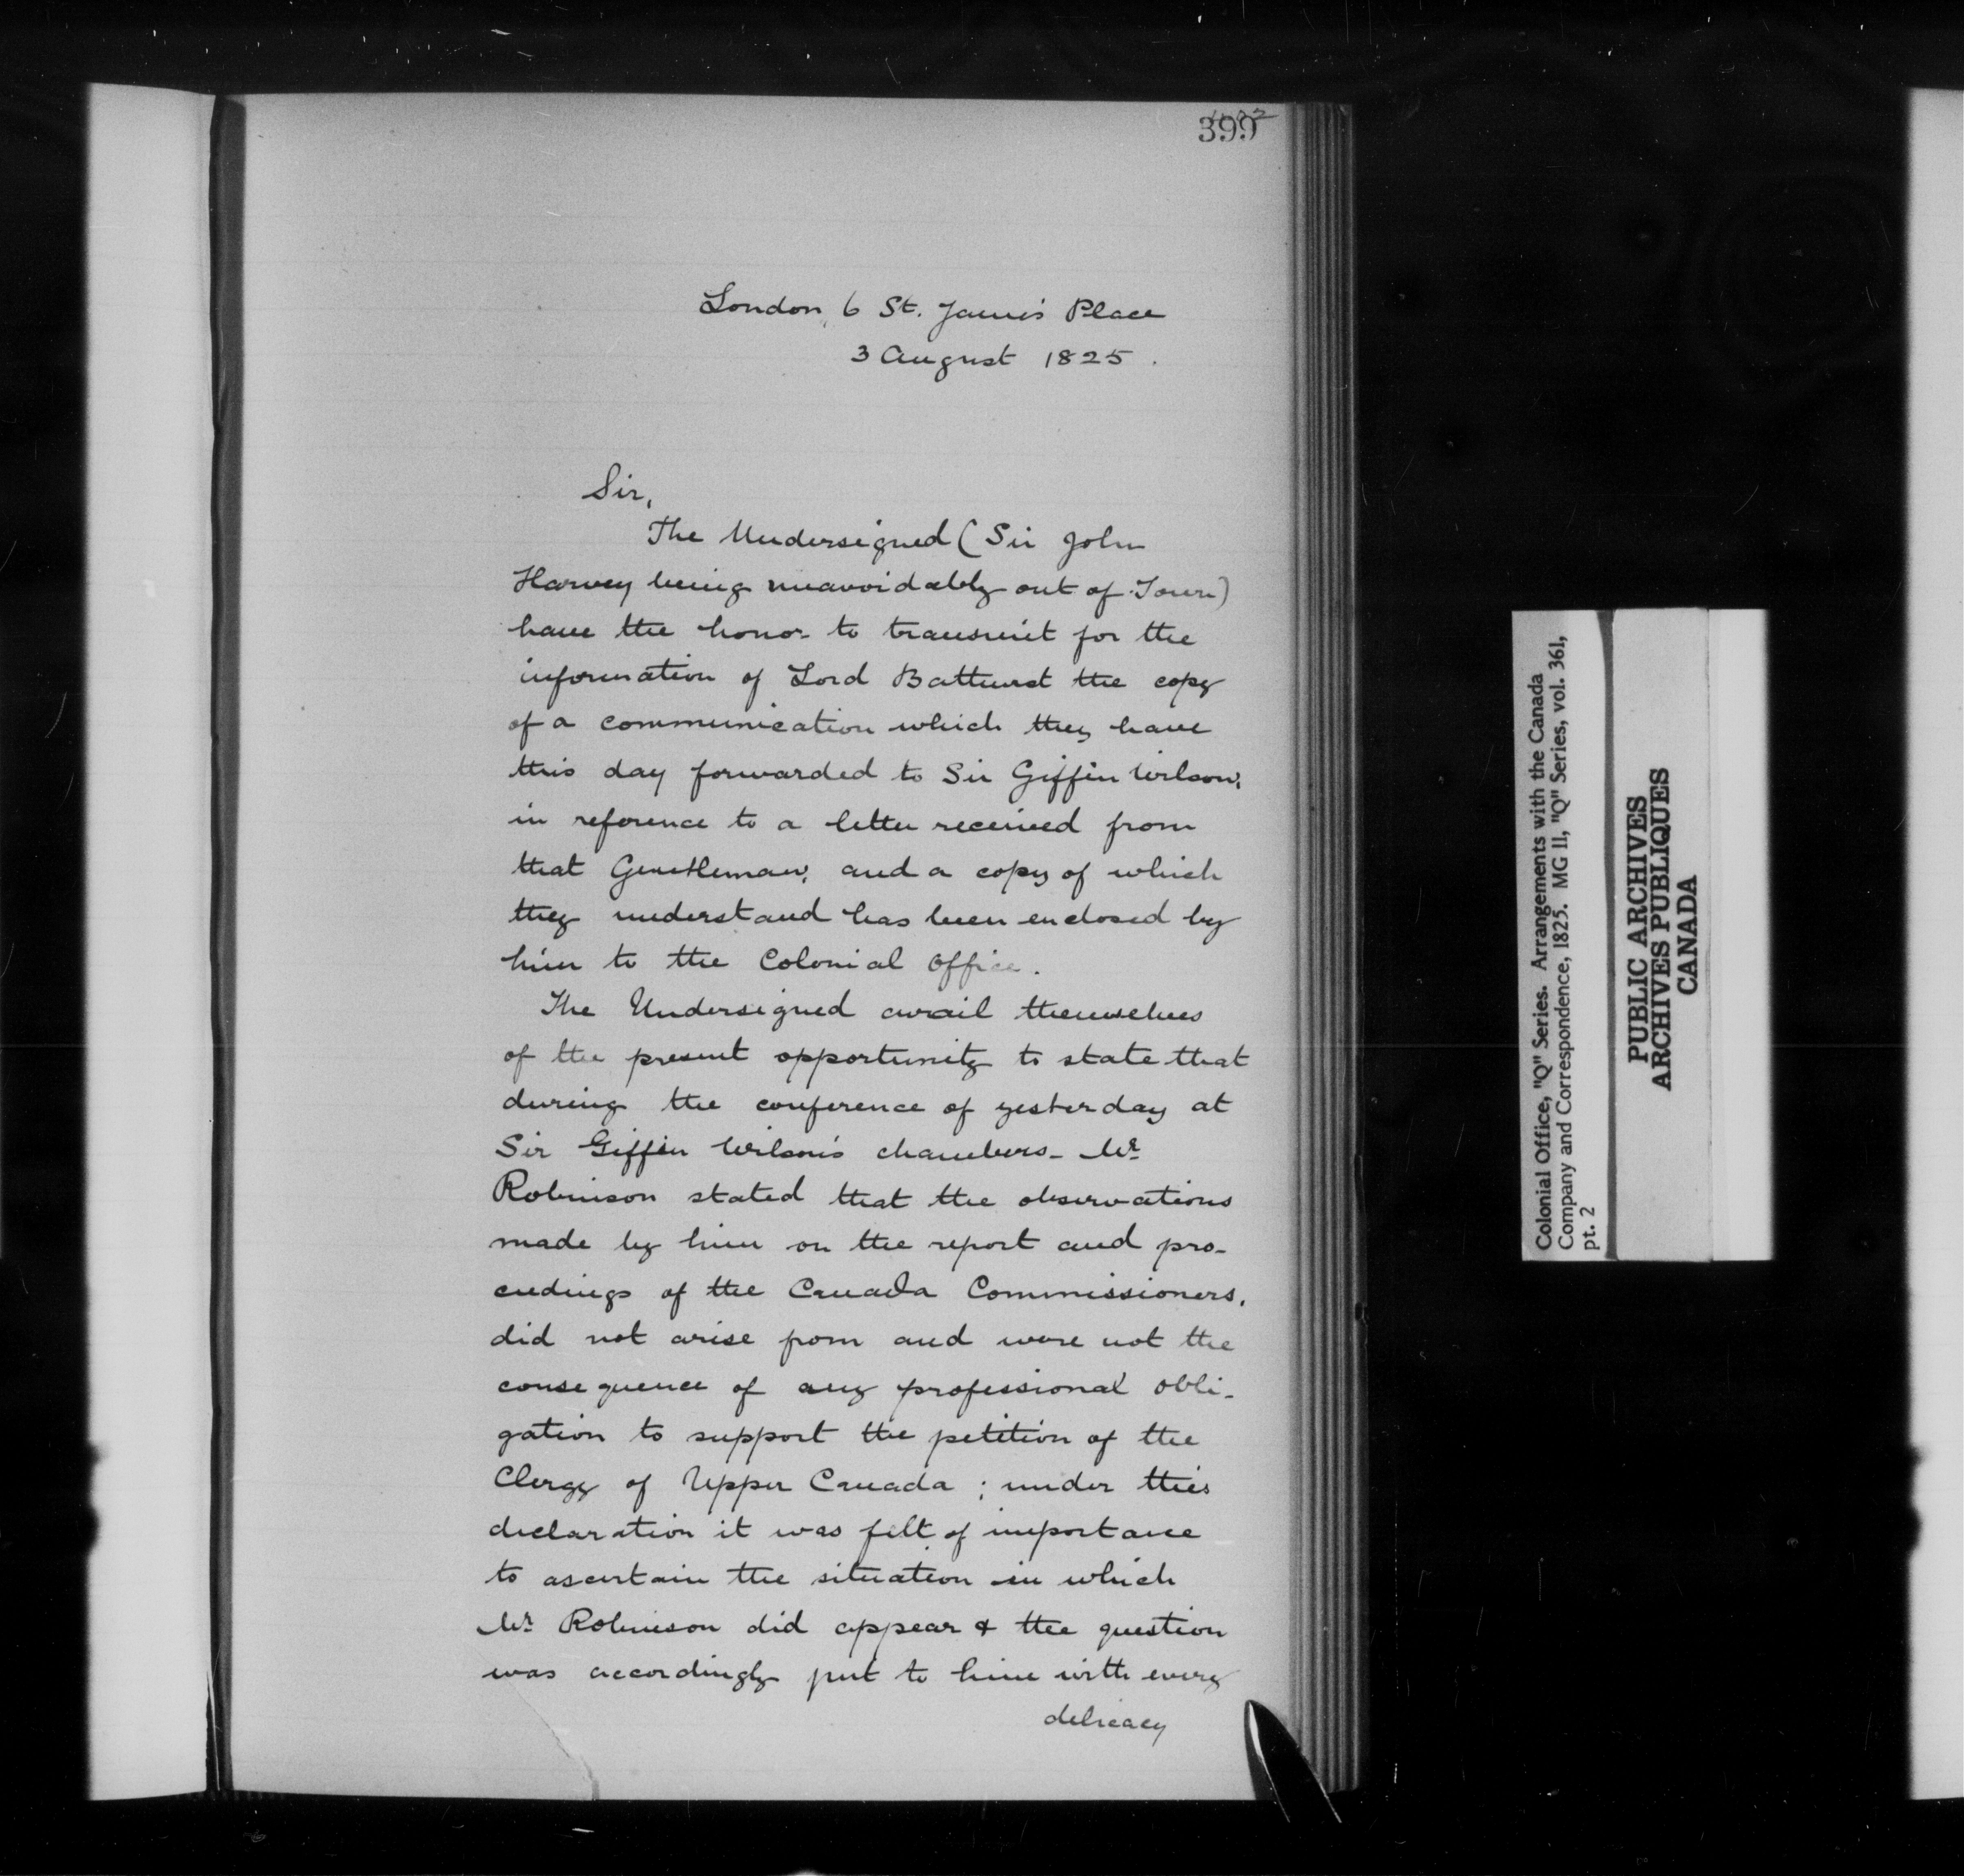 399
London, 6 St. James's Place
3 August 1825.
Sir,
The Undersigned (Sir John
Harvey being unavoidably out of Town)
have the honor to transmit for the
information of Lord Bathurst the copy
of a communication which they have
this day forwarded to Sir Giffin Wilson,
in reference to a letter received from
that Gentleman, and a copy of which
they understand has been enclosed by
him to the Colonial Office.
The Undersigned avail themselves
of the present opportunity to state that
during the conference of yesterday at
Sir Giffin Wilson's chambers - Mr
Robinson stated that the observations
made by him on the report and pro-
ceedings of the Canada Commissioners,
did not arise from and were not the
consequence of any professional obli-
gation to support the petition of the
Clergy of Upper Canada ; under this
declaration it was felt of importance
to ascertain the situation in which
Mr Robinson did appear & the question
was accordingly put to him with every
delicacy
Colonial Office, "Q" Series. Arrangements with the Canada
Company and Correspondence, 1825. MG 11, "Q" Series, vol. 361,
pt. 2
PUBLIC ARCHIVES
ARCHIVES PUBLIQUES
CANADA